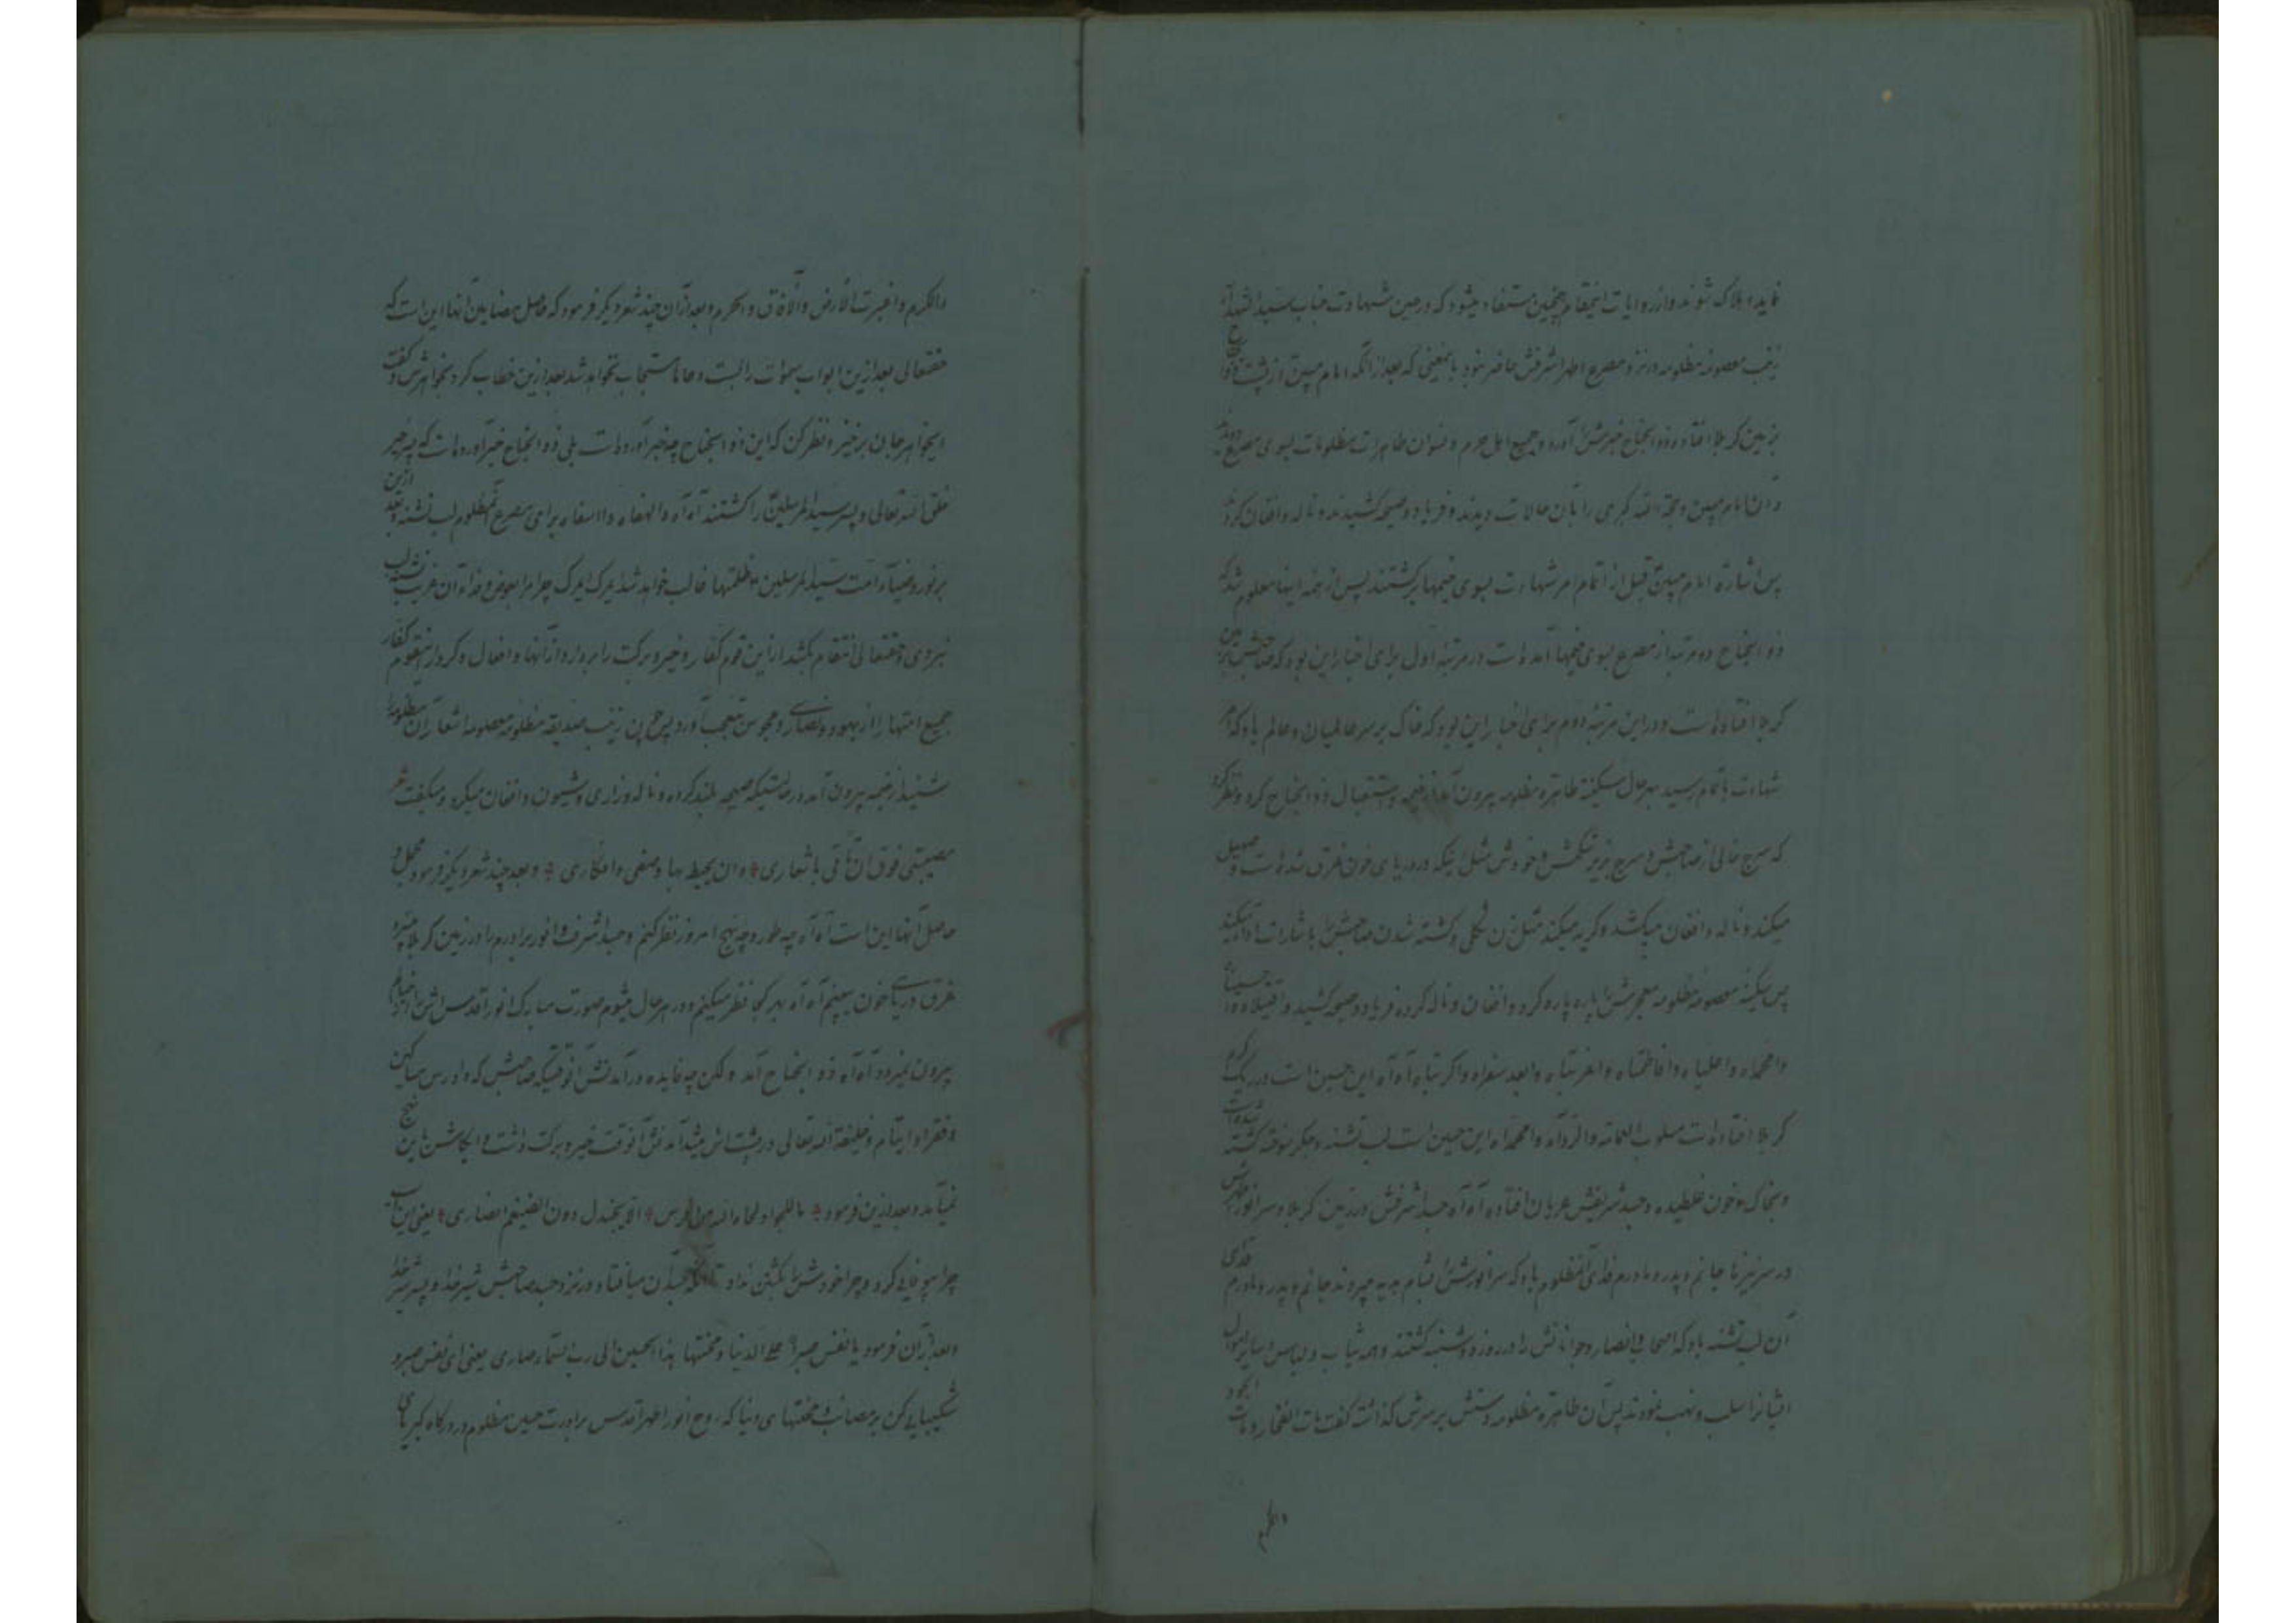 نماید و هلاک شوند و از روایات اینمقام همچنین مستفاد میشود که در حین شهادت جناب سید الشهدآء ع
زینب معصومه مظلومه در نزد مصرع اطهر اشرفش حاضر نبود بلکه بعد از آنکه امام مبین از پشت
بزمین کربلا افتاد و ذو الجناح خبرش آورد و جمیع اهل حرم و نسوان طاهرات مظلومات بسوی مصرع دویدند
و آن امام مبین و حجة الله کبری را بآن حالات دیدند و فریاد و صیحه کشیدند و ناله و افغان کردند
پس باشارة امام مبین قبل از اتمام امر شهادت بسوی خیمها برگشتند پس از همه اینها معلوم شد که
ذو الجناح دو مرتبه از مصرع بسوی خیمها آمده است در مرتبه اول برای اخبار این بود که صاحبش بر زمین
کربلا افتاده است و در این مرتبه دوم برای اخبار این بود که خاک بر سر عالمیان و عالم باد که امر
شهادت باتمام رسید بهر حال سکینه طاهره مظلومه بیرون آمد از خیمه و استقبال ذو الجناح کرد و نظر کرد
که سرج خالی از صاحبش و سرج بزیر شکمش و خودش مثل اینکه در دریای خون غرق شده است و صهیل
میکند و ناله و افغان میکشد و گریه میکند مثل زن ثکلی و کشته شدن صاحبش را باشارات ادا میکند
پس سکینه معصومه مظلومه معجرش را پاره پاره کرد و افغان و ناله کرده فریاد و صیحه کشید وا قتیلاه وا حسیناه
وا محمداه وا علیاه وا فاطمتاه وا غربتاه وا بعد سفراه وا کربتاه آه آه این حسین است در ریگ گرم
کربلا افتاده است مسلوب العمامة و الردآء وا محمداه این حسین است لب تشنه و جگر سوخته کشته شده است
و بخاک و خون غلطیده و جسد شریفش عریان افتاده آه آه جسد اشرفش در زمین کربلا و سر انور اطهرش
در سر نیزها جانم و پدر و مادرم فدای آنمظلوم باد که سر انورش را بشام هدیه میبرند جانم و پدر و مادرم فدای
آن لب تشنه باد که اصحاب و انصار و جوانانش را در روز دوشنبه کشتند و همه ثیاب و لباس و سایر اموال
ایشانرا سلب و نهب نمودند پس آن طاهره مظلومه دستش بر سرش گذاشت گفت مات الفخار و مات الجود
والکرم
والکرم و اغبرت الارض والآفاق والحرم و بعد از آن چند شعر دیگر فرمود که حاصل مضامین آنها این است که
حقتعالی بعد از این ابواب سموات را بست و دعاها مستجاب نخواهد شد بعد از این خطاب کرد بخواهرش و گفت
ایخواهر جان برخیز و نظر کن که این ذو الجناح چه خبر آورده است بلی ذو الجناح خبر آورده است که بهترین
خلق الله تعالی و پسر سید المرسلین را کشتند آه آه وا لهفاه وا اسفاه برای مصرع آنمظلوم لب تشنه و بعد ازین
بر نور و ضیآء امت سید المرسلین ظلمتها غالب خواهد شد ایمرگ ایمرگ چرا مرا بعوض و فداء آن غریب لب تشنه
نبردی و حقتعالی انتقام بکشد از این قوم کفار و خیر و برکت را بردارد از آنها و افعال و کردار اینقوم کفار
جمیع امتها را از یهود و نصاری و مجوس بتعجب آورد پس چون زینب صدیقه مظلومه معصومه اشعار آن مظلومه را
شنید از خیمه بیرون آمد در حالتیکه صیحه بلند کرده و ناله و زاری و شیون و افغان میکرد و میگفت شعر
مصیبتی فوق ان ارثی باشعاری * و ان یحیط بها وصفی و افکاری * و بعد چند شعر دیگر فرمود مجمل و
حاصل آنها این است آه آه چه طور و چه نهج امروز نظر کنم و جسد اشرف و انور برادرم را در زمین کربلا
غرق دریای خون ببینم آه آه بهر کجا نظر میکنم و در هر حال میشوم صورت مبارک انور اقدس اش از خیالم
بیرون نمیرود آه آه ذو الجناح آمد و لکن چه فایده در آمدنش آنوقتیکه صاحبش که دادرس مساکین
و فقرا و ایتام و خلیفة الله تعالی در پشتاش میشد آمدنش آنوقت خیر و برکت داشت و ایکاش باین نهج
نمیآمد و بعد از این فرمود * ما للجواد لحاه الله من فرس * الا یجندل دون الضیغم الضاری * یعنی این اسب
چرا بیوفائی کرد و چرا خودش را بکشتن نداد تا آنکه جسد آن میافتاد در نزد جسد صاحبش شیر خدا و پسر شیر خدا
و بعد از آن فرمود یا نفس صبرا علی الدنیا و محنتها هذا الحسین الی رب السمآء صاری یعنی ای نفس صبر و
شکیبائی کن بر مصائب و محنتهای دنیا که روح انور اطهر اقدس برادرت حسین مظلوم در درگاه کبریای